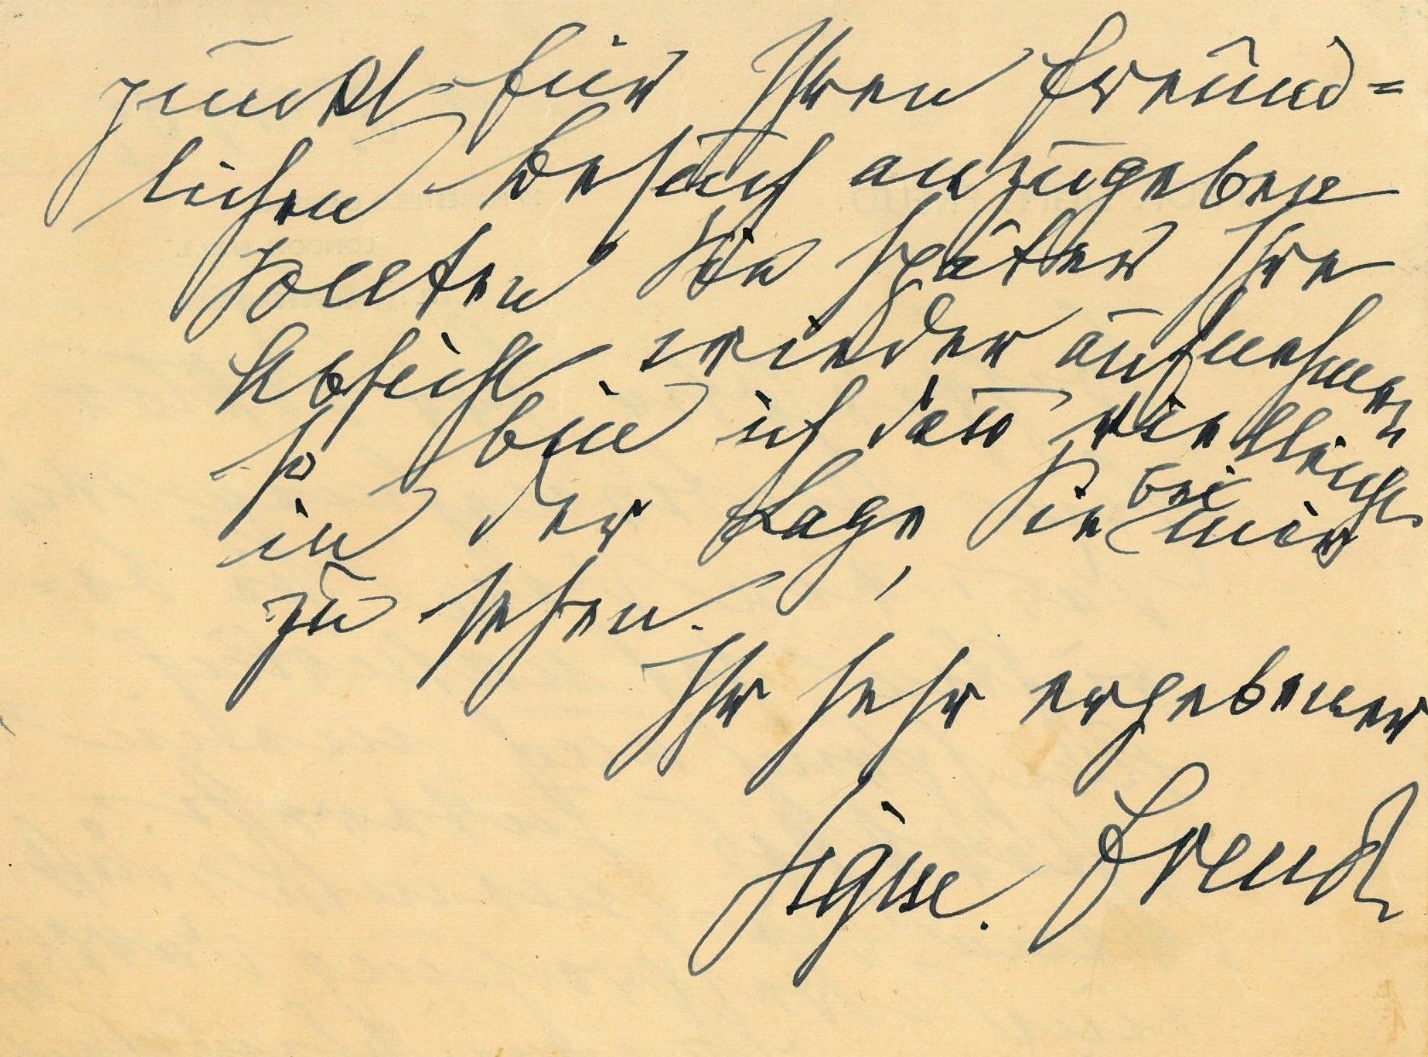 punkt für Ihren freund=
lichen Besuch anzugeben
Sollten Sie später Ihre
Absicht wieder aufnehmen
so bin ich dann vielleicht
in der Lage, Sie bei mir
zu sehen.
Ihr sehr ergebener
Sigm. Freud